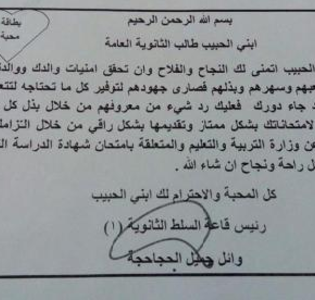 بطاقة
محبة
بسم الله الرحمن الرحيم
ابني الحبيب طالب الثانوية العامة
الحبيب اتمنى لك النجاح والفلاح وان تحقق امنيات والدك ووالد
عبهم وسهرهم وبذلهم قصارى جهودهم لتوفير كل ما تحتاجه لتتع
د جاء دورك فعليك رد شيء من معروفهم من خلال بذل كل
لامتحاناتك بشكل ممتاز وتقديمها بشكل راقي من خلال التزاما
عن وزارة التربية والتعليم والمتعلقة بامتحان شهادة الدراسة ال
ل راحة ونجاح ان شاء الله .
كل المحبة والاحترام لك ابني الحبيب
رئيس قاعة السلط الثانوية (١)
وائل جميل الحجاحجة